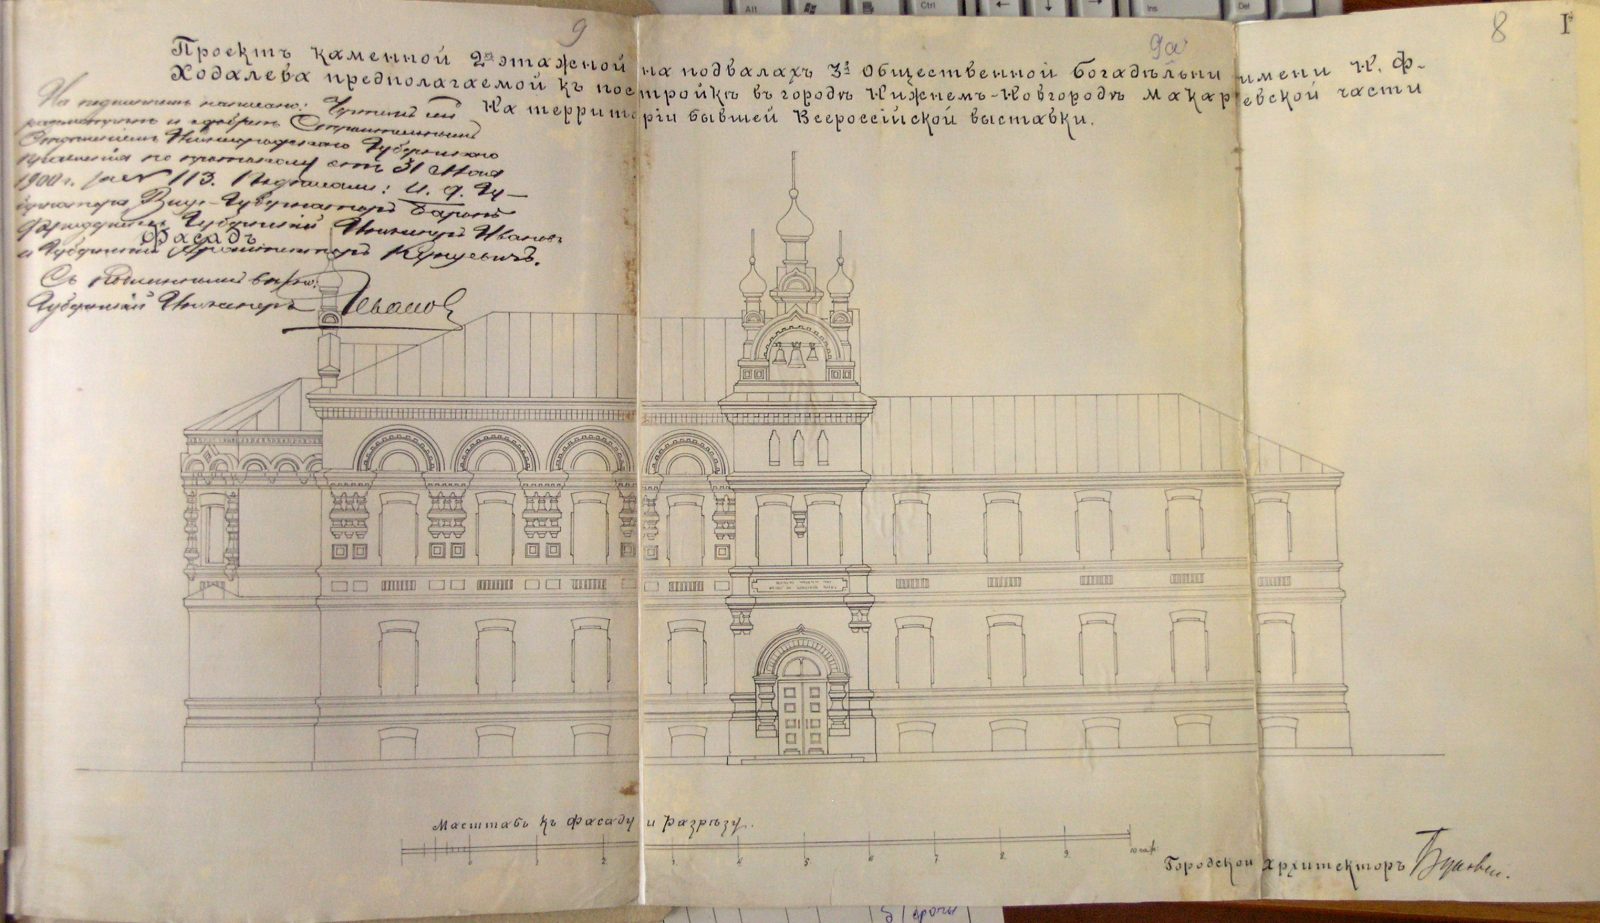 9
9а
8
I
Проектъ каменной 2хэтажной на подвалахъ 3й Общественной богадѣльни имени Н. Ф.
Ходалева предполагаемой къ постройкѣ въ городѣ Нижнемъ-Новгородѣ Макарьевской части
На территоріи бывшей Всероссійской выставки.
На подлинномъ написано:
разсмотрѣнъ и одобренъ Строительнымъ
Отдѣленіемъ Нижегородскаго Губернскаго
Правленія по протоколу отъ 31 Мая
1900 г. за № 113. Подписали: И. д. Гу-
бернатора Вице-Губернаторъ Баронъ
Губернскій Инженеръ Ивановъ
и Губернскій Архитекторъ
Фасадъ
Съ подлиннымъ вѣрно:
Губернскій Инженеръ Ивановъ
Масштабъ къ фасаду и разрѣзу.
0 1 2 3 4 5 6 7 8 9 10 саж.
Городской Архитекторъ
Alt
Ctrl
Ins
Del